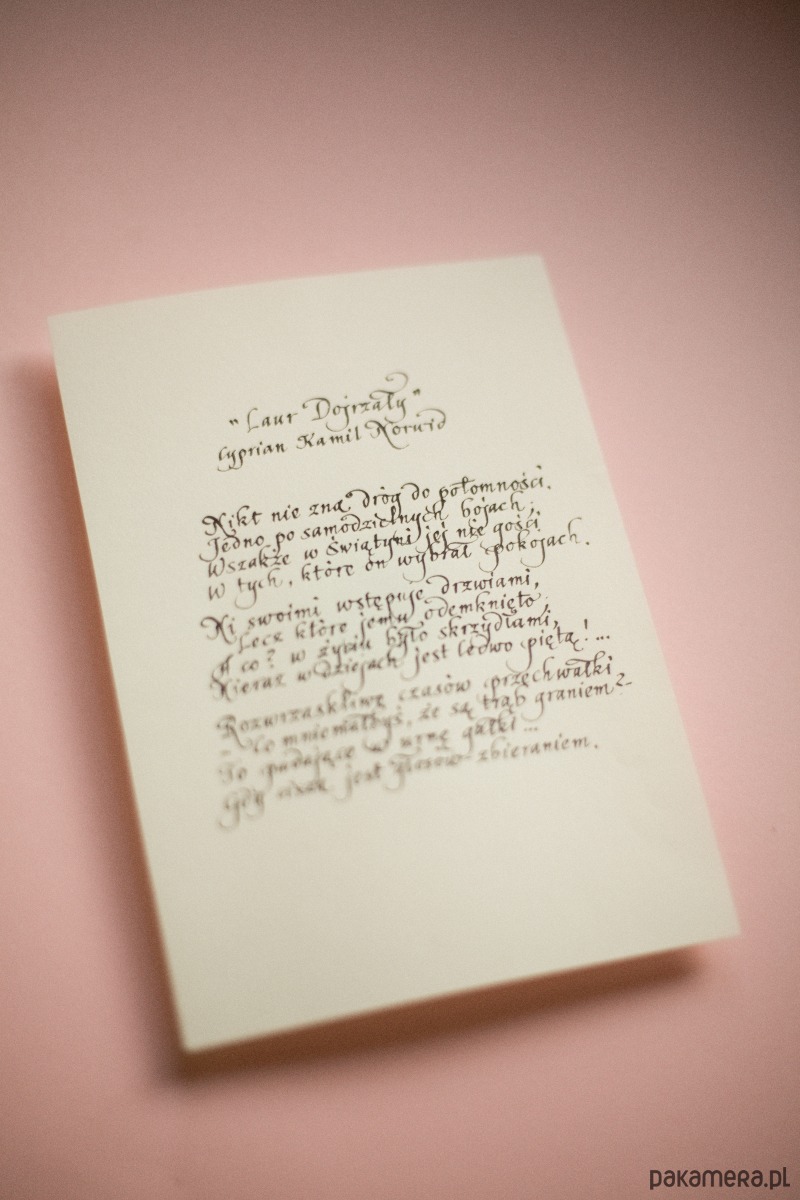 "Laur Dojrzały"
Cyprian Kamil Norwid
Nikt nie zna dróg do potomności.
Jedno po samodzielnych bojach;
Wszakże w Świątyni jej nie gości
W tych, które on wybrał pokojach.
Ni swoimi wstępuje drzwiami,
Lecz które jemu odemknięto
A co? w życiu było skrzydłami,
Nieraz w dziejach jest ledwo piętą!...
Rozwrzaskliwe czasów przechwałki
- Co mniemałbyś, że są trąb graniem?
To padające w urnę gałki...
Gdy cisza jest głosów-zbieraniem.
pakamera.pl